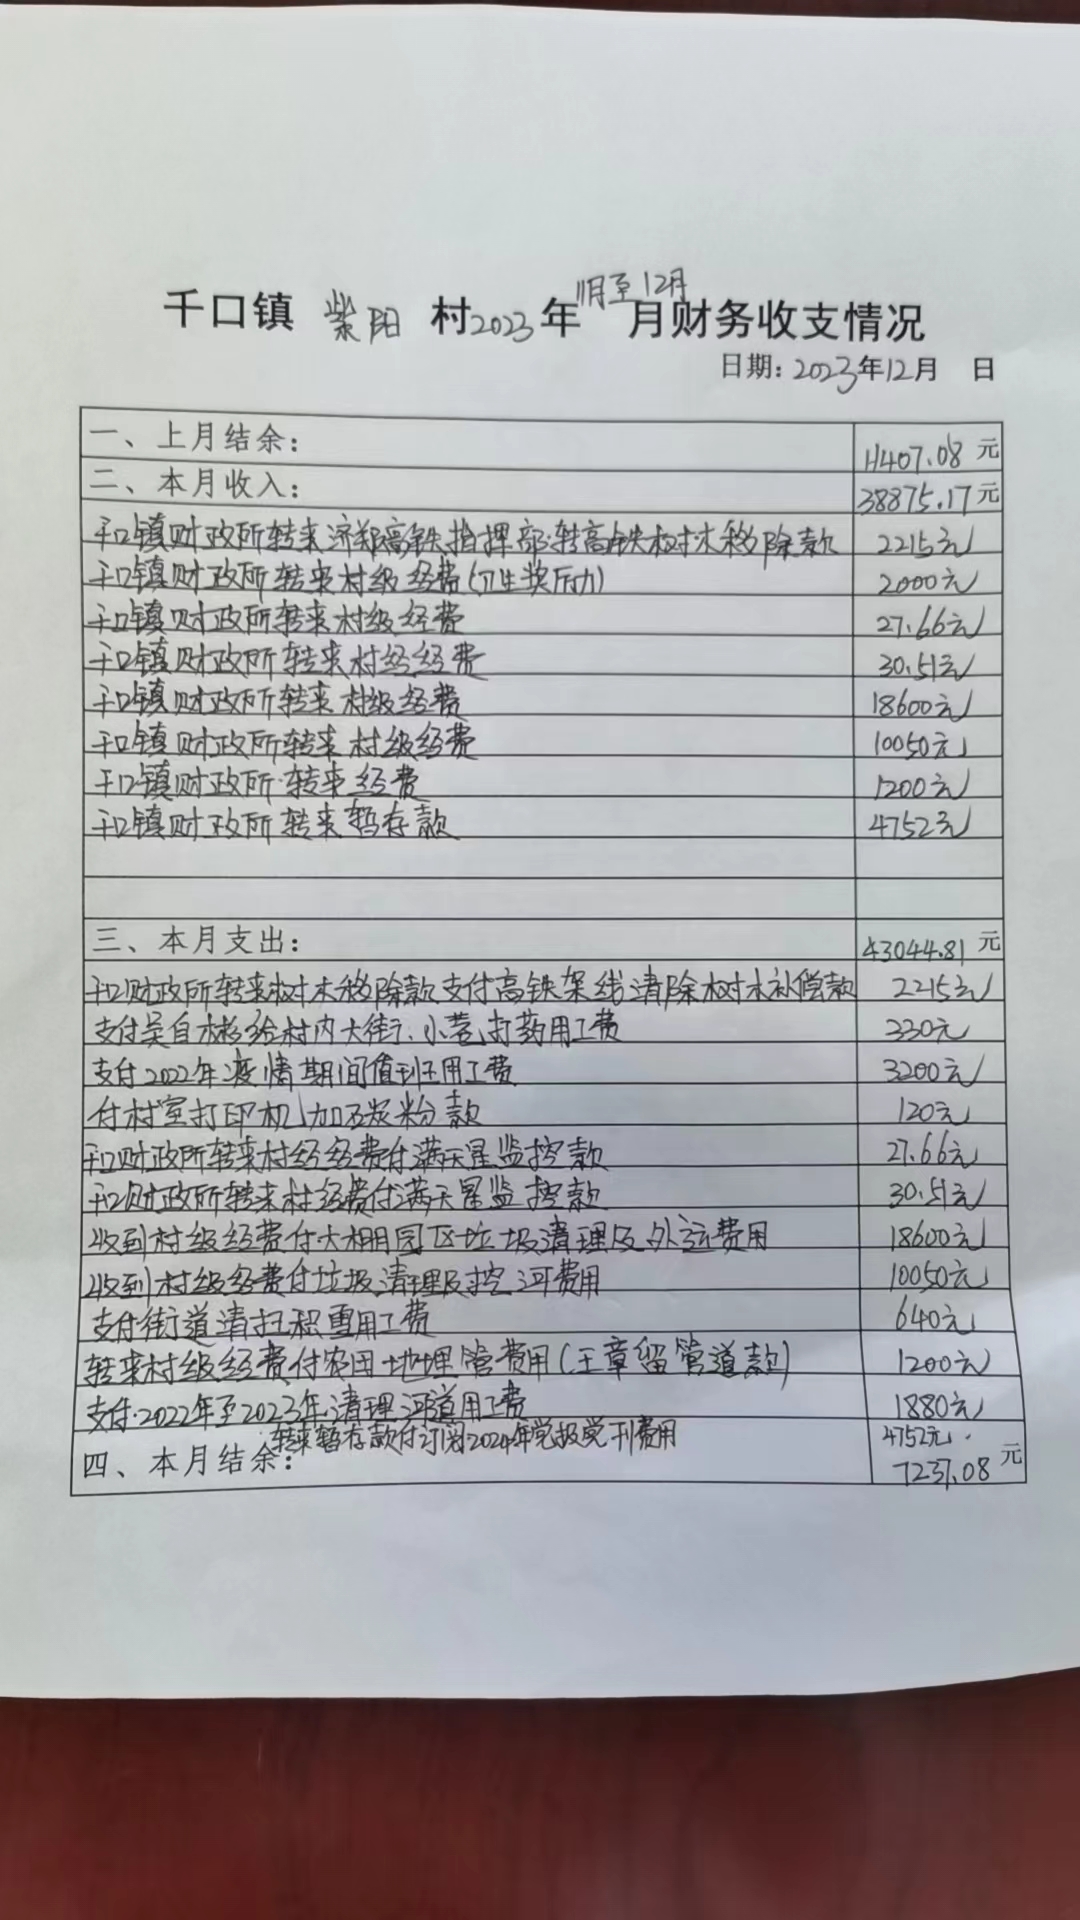 千口镇 紫阳 村2023年11月至12月月财务收支情况
日期：2023年12月 日
一、上月结余： 11407.08元
二、本月收入： 38875.17元
千口镇财政所转来济郑高铁指挥部转高铁树木移除款 2215元
千口镇财政所转来村级经费(卫生奖励) 2000元
千口镇财政所转来村级经费 27.66元
千口镇财政所转来村经经费 30.51元
千口镇财政所转来村级经费 18600元
千口镇财政所转来村级经费 10050元
千口镇财政所转来经费 1200元
千口镇财政所转来暂存款 4752元
三、本月支出： 43044.81元
千口财政所转来树木移除款支付高铁架线清除树木补偿款 2215元
支付吴自彬给村内大街、小巷打药用工费 330元
支付2022年疫情期间值班用工费 3200元
付村室打印机加碳粉款 120元
千口财政所转来村经经费付满天星监控款 27.66元
千口财政所转来村经费付满天星监控款 30.51元
收到村级经费付大棚园区垃圾清理及外运费用 18600元
收到村级经费付垃圾清理及挖河费用 10050元
支付街道清扫积雪用工费 640元
转来村级经费付农田地埋管费用(王章留管道款) 1200元
支付2022年至2023年清理河道用工费 1880元
转来暂存款付订阅2024年党报党刊费用 4752元
四、本月结余： 7237.08元